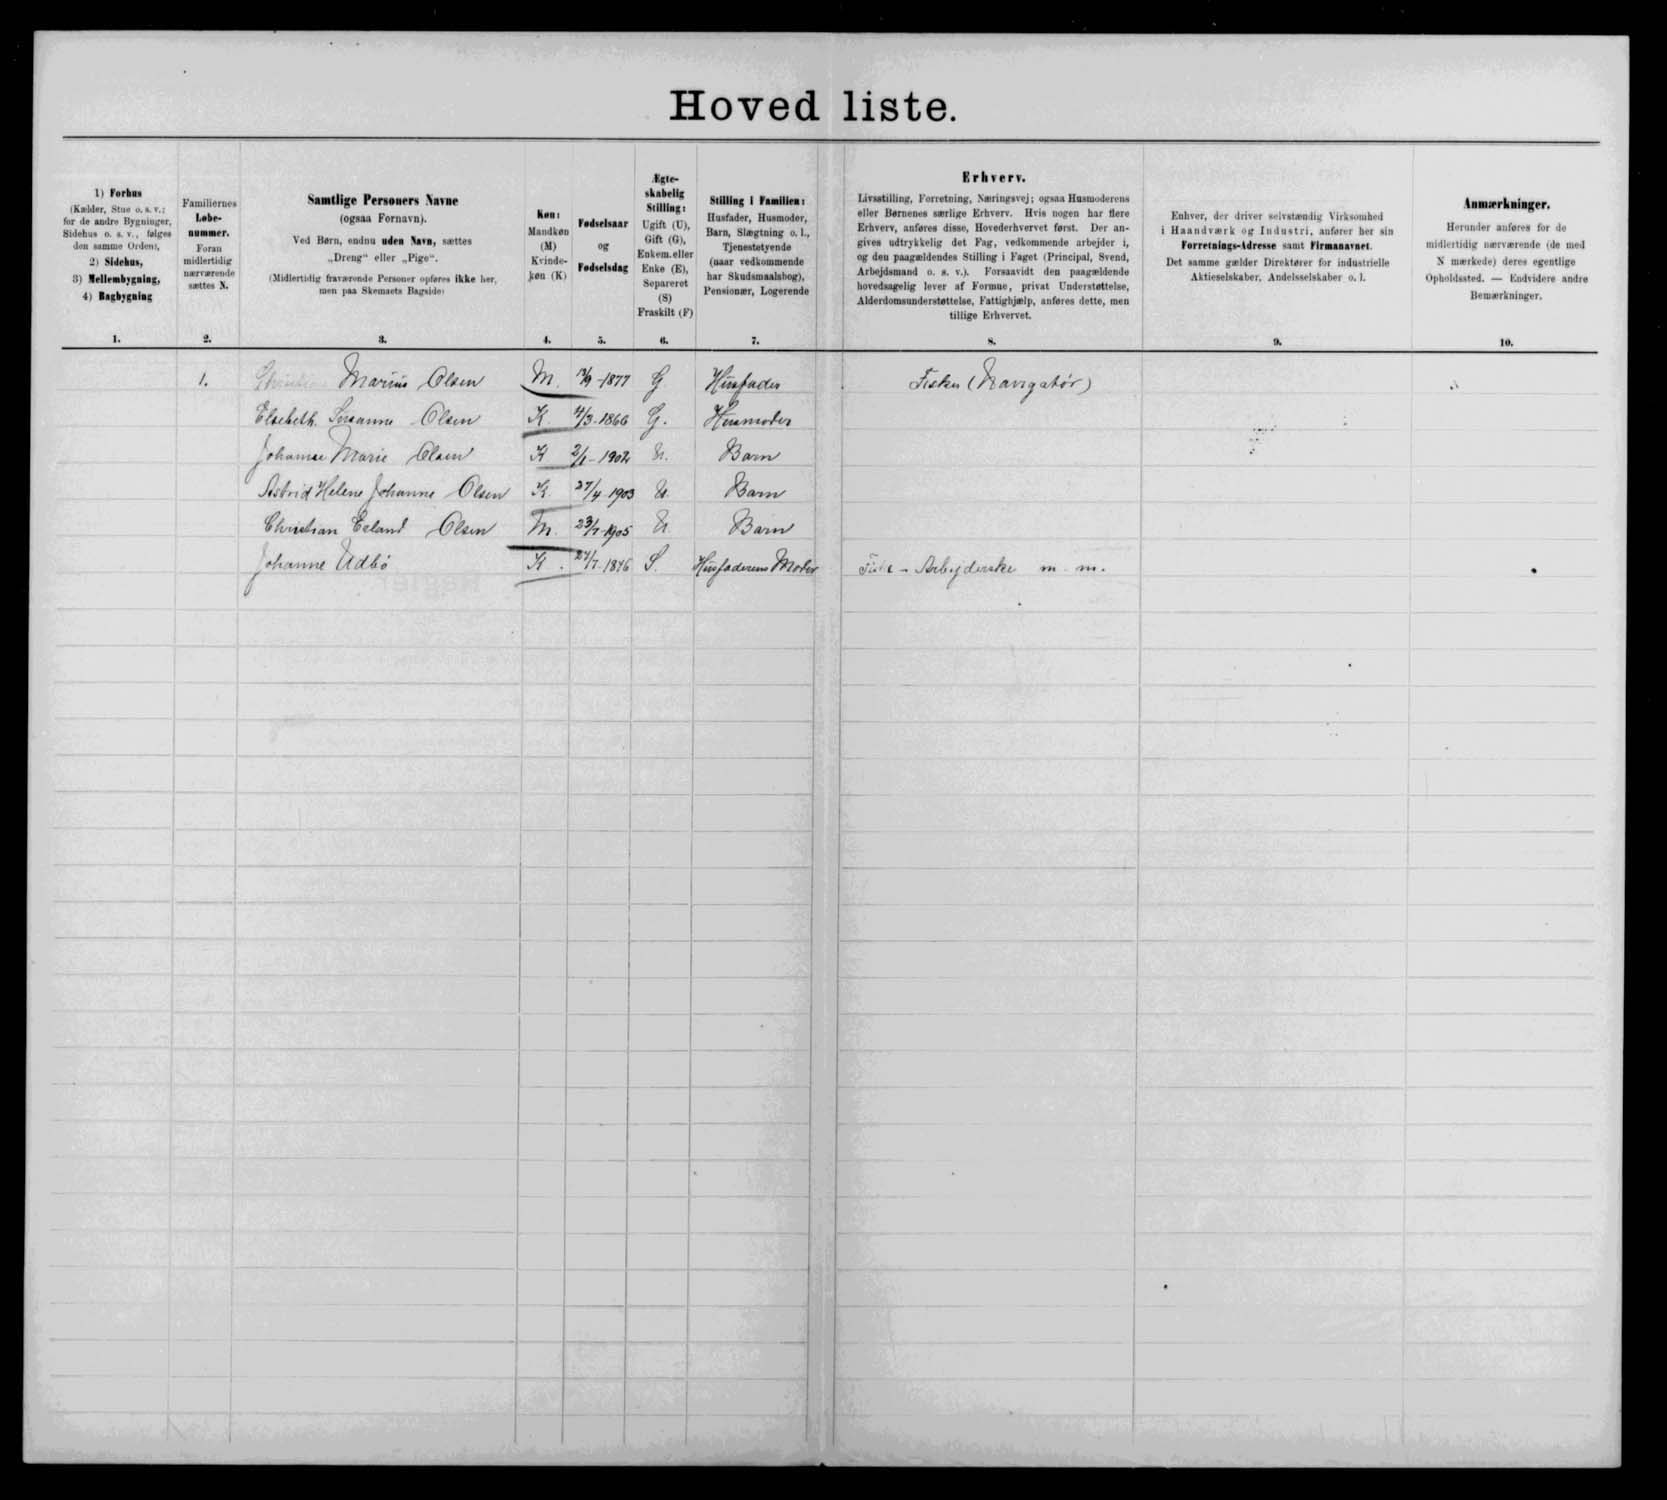 Hoved liste.
1) Forhus
(Kælder, Stue o. s. v.;
for de andre Bygninger,
Sidehus o. s. v., følges
den samme Orden),
2) Sidehus,
3) Mellembygning,
4) Bagbygning
Familiernes
Løbe-
nummer.
Foran
midlertidig
nærværende
sættes N.
Samtlige Personers Navne
(ogsaa Fornavn).
Ved Børn, endnu uden Navn, sættes
„Dreng“ eller „Pige“.
(Midlertidig fraværende Personer opføres ikke her,
men paa Skemaets Bagside)
Køn:
Mandkøn
(M)
Kvinde-
køn (K)
Fødselsaar
og
Fødselsdag
Ægte-
skabelig
Stilling:
Ugift (U),
Gift (G),
Enkem. eller
Enke (E),
Separeret
(S)
Fraskilt (F)
Stilling i Familien:
Husfader, Husmoder,
Barn, Slægtning o. l.,
Tjenestetyende
(naar vedkommende
har Skudsmaalsbog),
Pensionær, Logerende
Erhverv.
Livsstilling, Forretning, Næringsvej; ogsaa Husmoderens
eller Børnenes særlige Erhverv. Hvis nogen har flere
Erhverv, anføres disse, Hovederhvervet først. Der an-
gives udtrykkelig det Fag, vedkommende arbejder i,
og den paagældendes Stilling i Faget (Principal, Svend,
Arbejdsmand o. s. v.). Forsaavidt den paagældende
hovedsagelig lever af Formue, privat Understøttelse,
Alderdomsunderstøttelse, Fattighjælp, anføres dette, men
tillige Erhvervet.
Enhver, der driver selvstændig Virksomhed
i Haandværk og Industri, anfører her sin
Forretnings-Adresse samt Firmanavnet.
Det samme gælder Direktører for industrielle
Aktieselskaber, Andelsselskaber o. l.
Anmærkninger.
Herunder anføres for de
midlertidig nærværende (de med
N mærkede) deres egentlige
Opholdssted. — Endvidere andre
Bemærkninger.
1. 2. 3. 4. 5. 6. 7. 8. 9. 10.
1. Marius Olsen M. /9-1877 G Husfader Fisker (Navigatør)
Elsebeth. Susanne Olsen K. 4/3-1866 G. Husmoder
Johanne Marie Olsen K 2/1-1902 U. Barn
Astrid Helene Johanne Olsen K. 27/4-1903 U. Barn
Christian Erland Olsen M. 23/7-1905 U. Barn
Johanne Udbø K. 27/7-1846 S. Husfaderens Moder Arbejderske m. m.